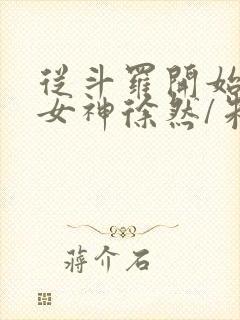 從斗羅開始
女神徐然/
蔣介石